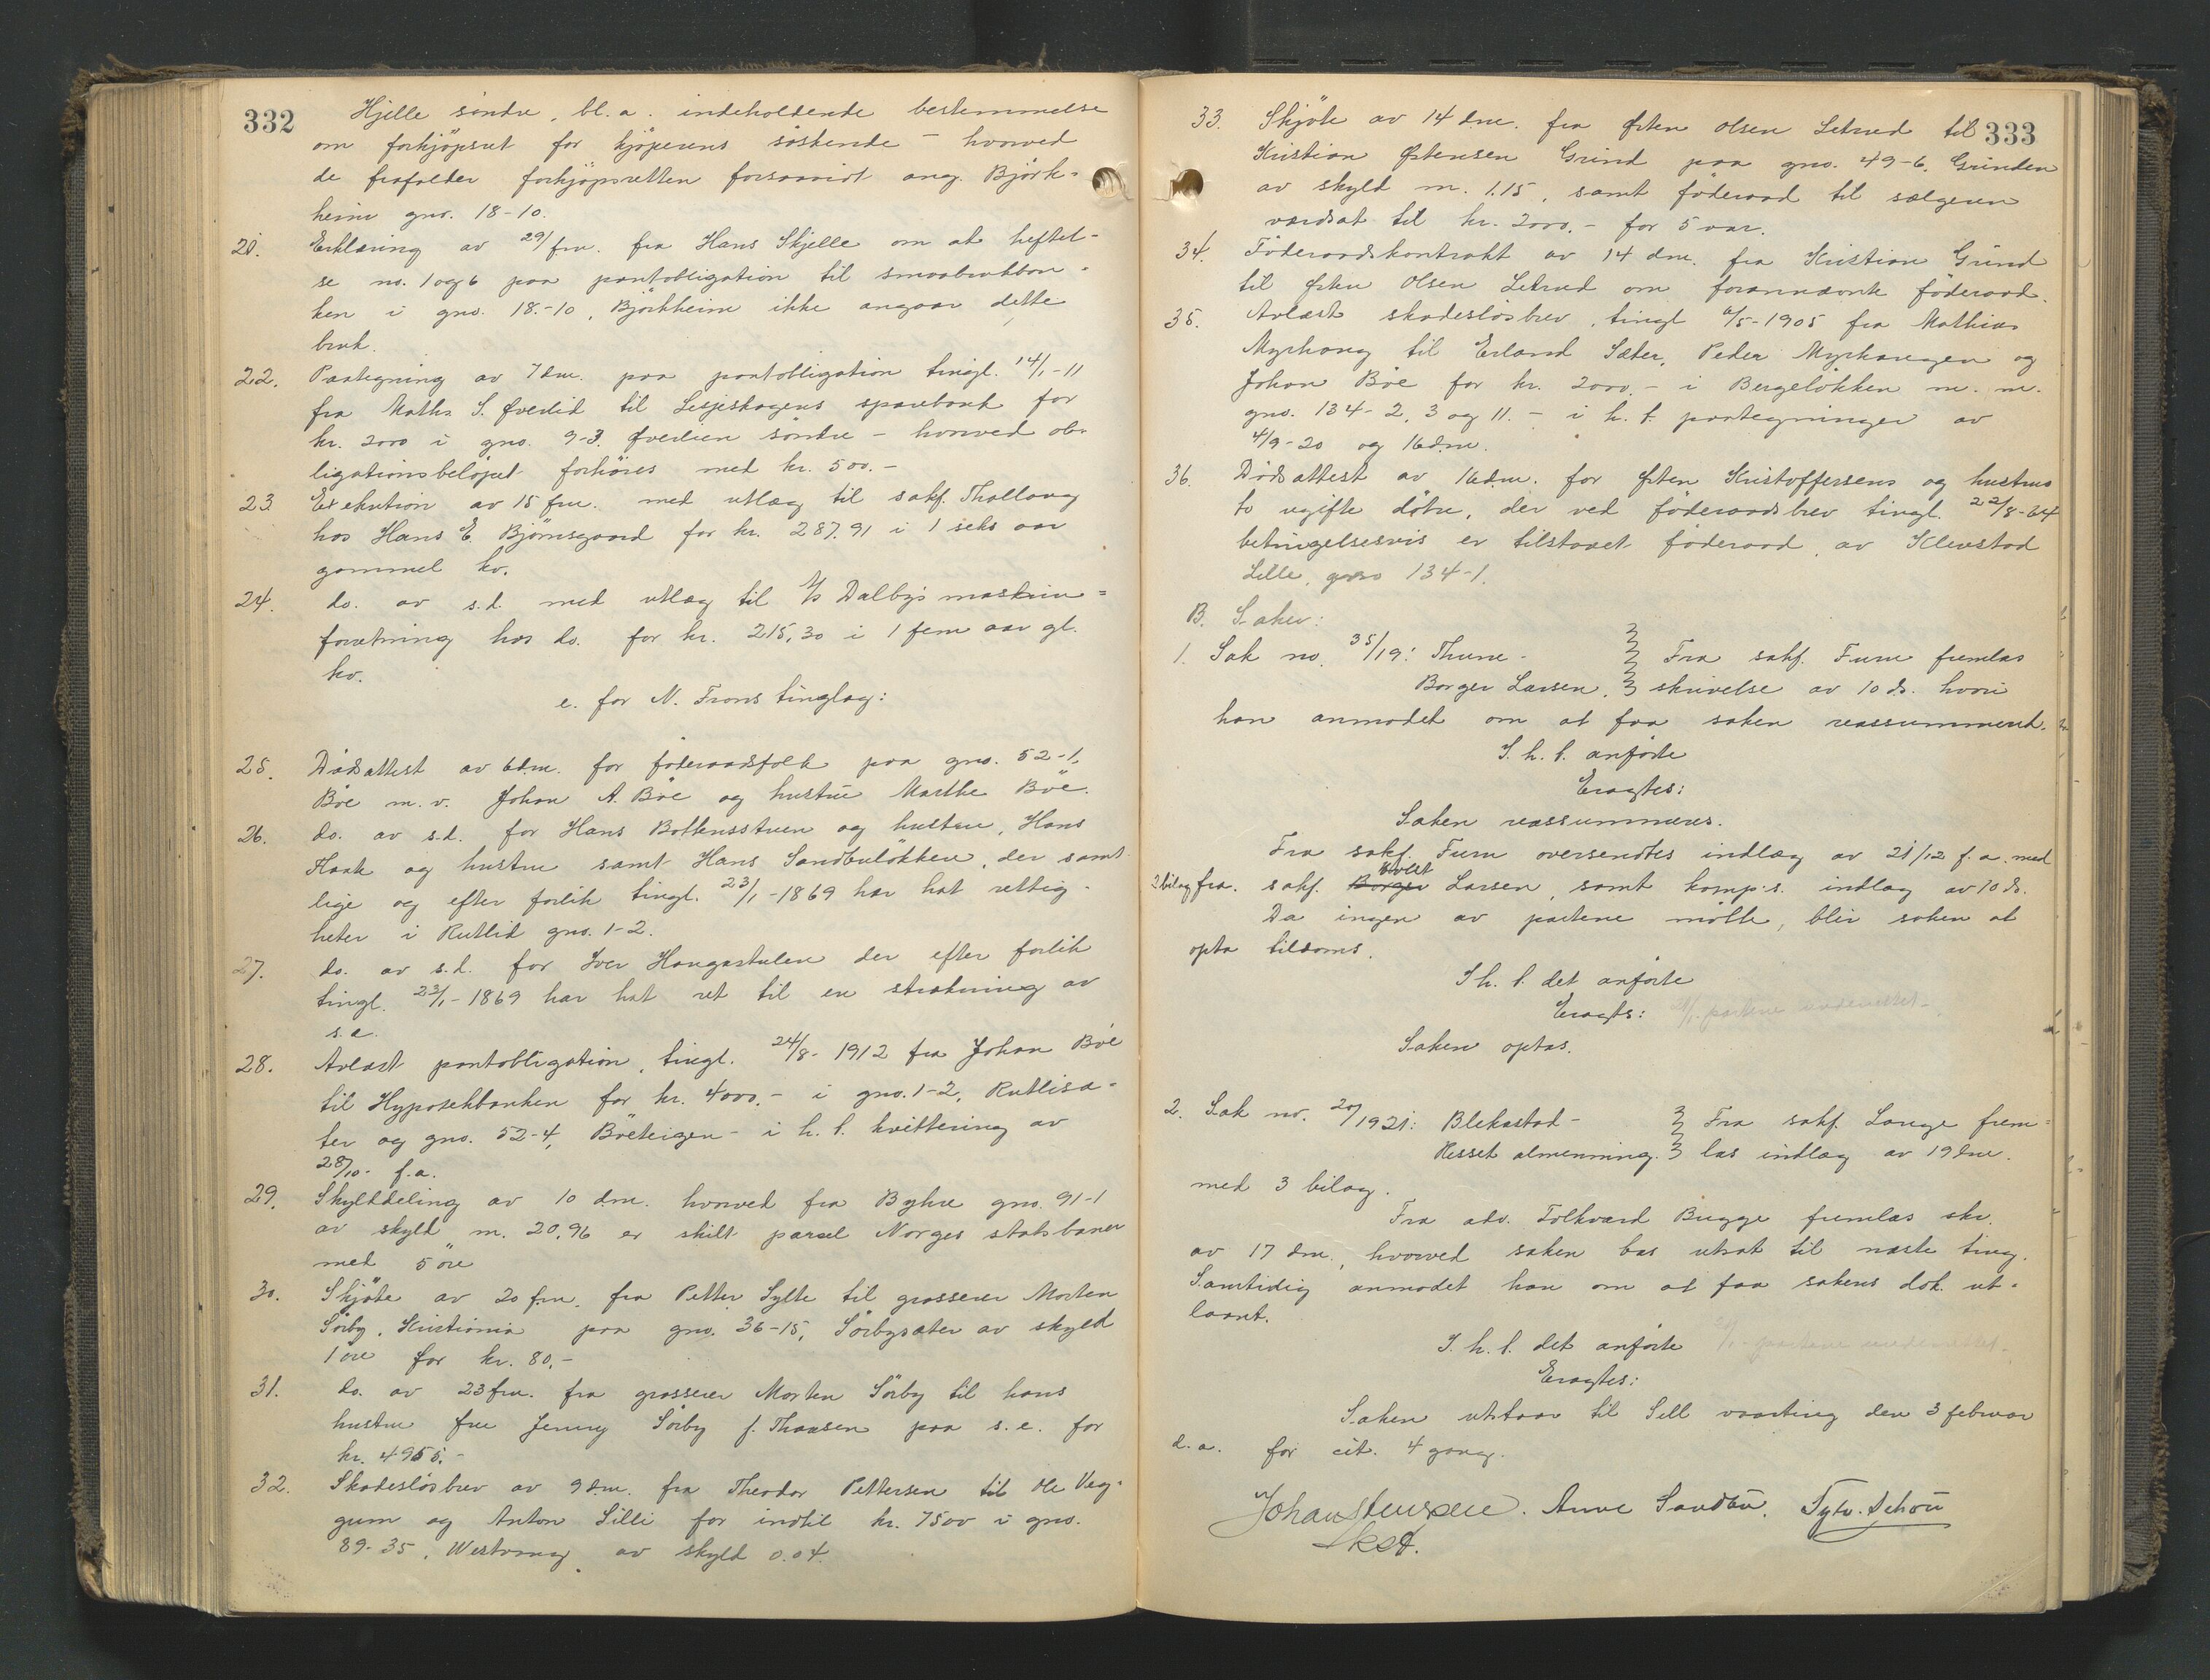 332
Hjelle søndre, bl.a. indeholdende bestemmelse
om forkjöpsret for kjöperens söskende - hvorved
de frafalder forkjöpsretten forsaavidt ang. Björk-
heim gno. 18-10.
21. Erklæring av 29/ fm. fra Hans Skjelle om at heftel-
se no. 1 og 6 paa pantobligation til smaabrukban-
ken i gno. 18.-10, Björkheim ikke angaar dette
bruk.
22. Paategning av 7 dm. paa pantobligation tingl. 14/1-11
fra Maths S. Øverlid til Lesjeskogens sparebank for
kr. 2000 i gno. 9-3. Øverlien söndre - hvorved ob-
ligationsbelöpet forhöies med kr. 500.-
23 Exekution av 15 fm. med utlæg til sakf. Thallaug
hos Hans E. Björnsgaard for kr. 287.91 i 1 seks aar
gammel ko.
24. do. av s.d. med utlæg til A/S Dalbys maskin=
forretning hos do. for kr. 215,30 i 1 fem aar gl.
ko.
e. for N. Frons tinglag:
25. Dödsattest av 6 dm. for föderaadsfolk paa gno. 52-1,
Böe m.v. Johan A. Böe og hustru Marthe Böe.
26. do. av s.d. for Hans Bottensstuen og hustru, Hans
Haak og hustru samt Hans Sandbulökken, der samt
lige og efter forlik tingl. 23/1-1869 har hat rettig-
heter i Rutlid gno. 1-2.
27. do. av s.d. for Iver Haugastulen der efter forlik
tingl. 23/1-1869 har hat ret til en strækning av
s.e.
28. Avlæst pantobligation, tingl. 24/8-1912 fra Johan Böe
til Hypotekbanken for kr. 4000.- i gno. 1-2, Rutlisæ-
ter og gno. 52-4, Böeteigen - i h.t. kvittering av
28/10- f.a.
29. Skylddeling av 10 dm. hvorved fra Byhre gno. 91-1
av skyld m. 20,96 er skilt parsel Norges statsbaner
med 5 öre
30. Skjöte av 20 fm. fra Petter Sylte til grosserer Morten
Sörby, Kristiania paa gno. 36-15, Sörbysæter av skyld
1 öre for kr. 80.-
31. do. av 23 fm. fra grosserer Morten Sörby til hans
hustru fru Jenny Sörby f. Thaasen paa s.e. for
kr. 4955.-
32. Skadeslösbrev av 9 dm. fra Theodor Pettersen til Ole Vag-
gum og Anton Lilli for indtil kr. 7500 i gno.
89-35, Westvang av skyld 0.04.
333
33. Skjöte av 14 dm. fra Østen Olsen Letrud til
Kristian Østensen Grind paa gno. 49-6, Grinden
av skyld m. 1.15, samt föderaad til sælgeren
værdsat til kr. 2000.- for 5 aar.
34. Föderaadskontrakt av 14 dm. fra Kristian Grind
til Østen Olsen Letrud om forannævnte föderaad.
35. Avlæst skadeslösbrev, tingl 6/5-1905 fra Mathias
Myrhaug til Erland Sæter, Peder Myrhaugen og
Johan Böe for kr. 2000.- i Bergelökken m.m.
gno. 134-2, 3 og 11. - i h.t. paategninger av
4/9-20 og 16 dm.
36. Dödsattest av 16 dm. for Østen Kristoffersens og hustrus
to ugifte dötre, der ved föderaadsbrev tingl. 22/8-64
betingelsesvis er tilstaaet föderaad av Klevstad
Lille, gno 134-1.
B. Saker:
1. Sak no. 35/19: Thune - Fra sakf. Furu fremlas
Borger Larsen. skrivelse av 10 ds. hvori
han anmodet om at faa saken reassummert.
I h.t. anförte
Eragtes:
Saken reassummeres.
Fra sakf. Furu oversendtes indlæg av 21/12 f.a. med
2 bilag fra. sakf. Borger Larsen, samt komp:s. indlæg av 10 ds.
Da ingen av partene mötte, blir saken at
opta tildoms.
I h.t. det anförte
Eragtes: partene underrettet.
Saken optas.
2. Sak no. 20/1921: Blekastad - Fra sakf. Lange frem=
Resset almenning. las indlæg av 19 dm.
med 3 bilag.
Fra adv. Folkvard Bugge fremlas skr.
av 17 dm., hvorved saken bas utsat til næste ting.
Samtidig anmodet han om at faa sakens dok. ut-
laant.
I h.t. det anförte
Eragtes:
Saken utstaar til Sell vaarting den 3 februar
d.a. for cit. 4 gang.
Johan Stensæe. Anne Sandbu. Sylv. Schou
Skst.